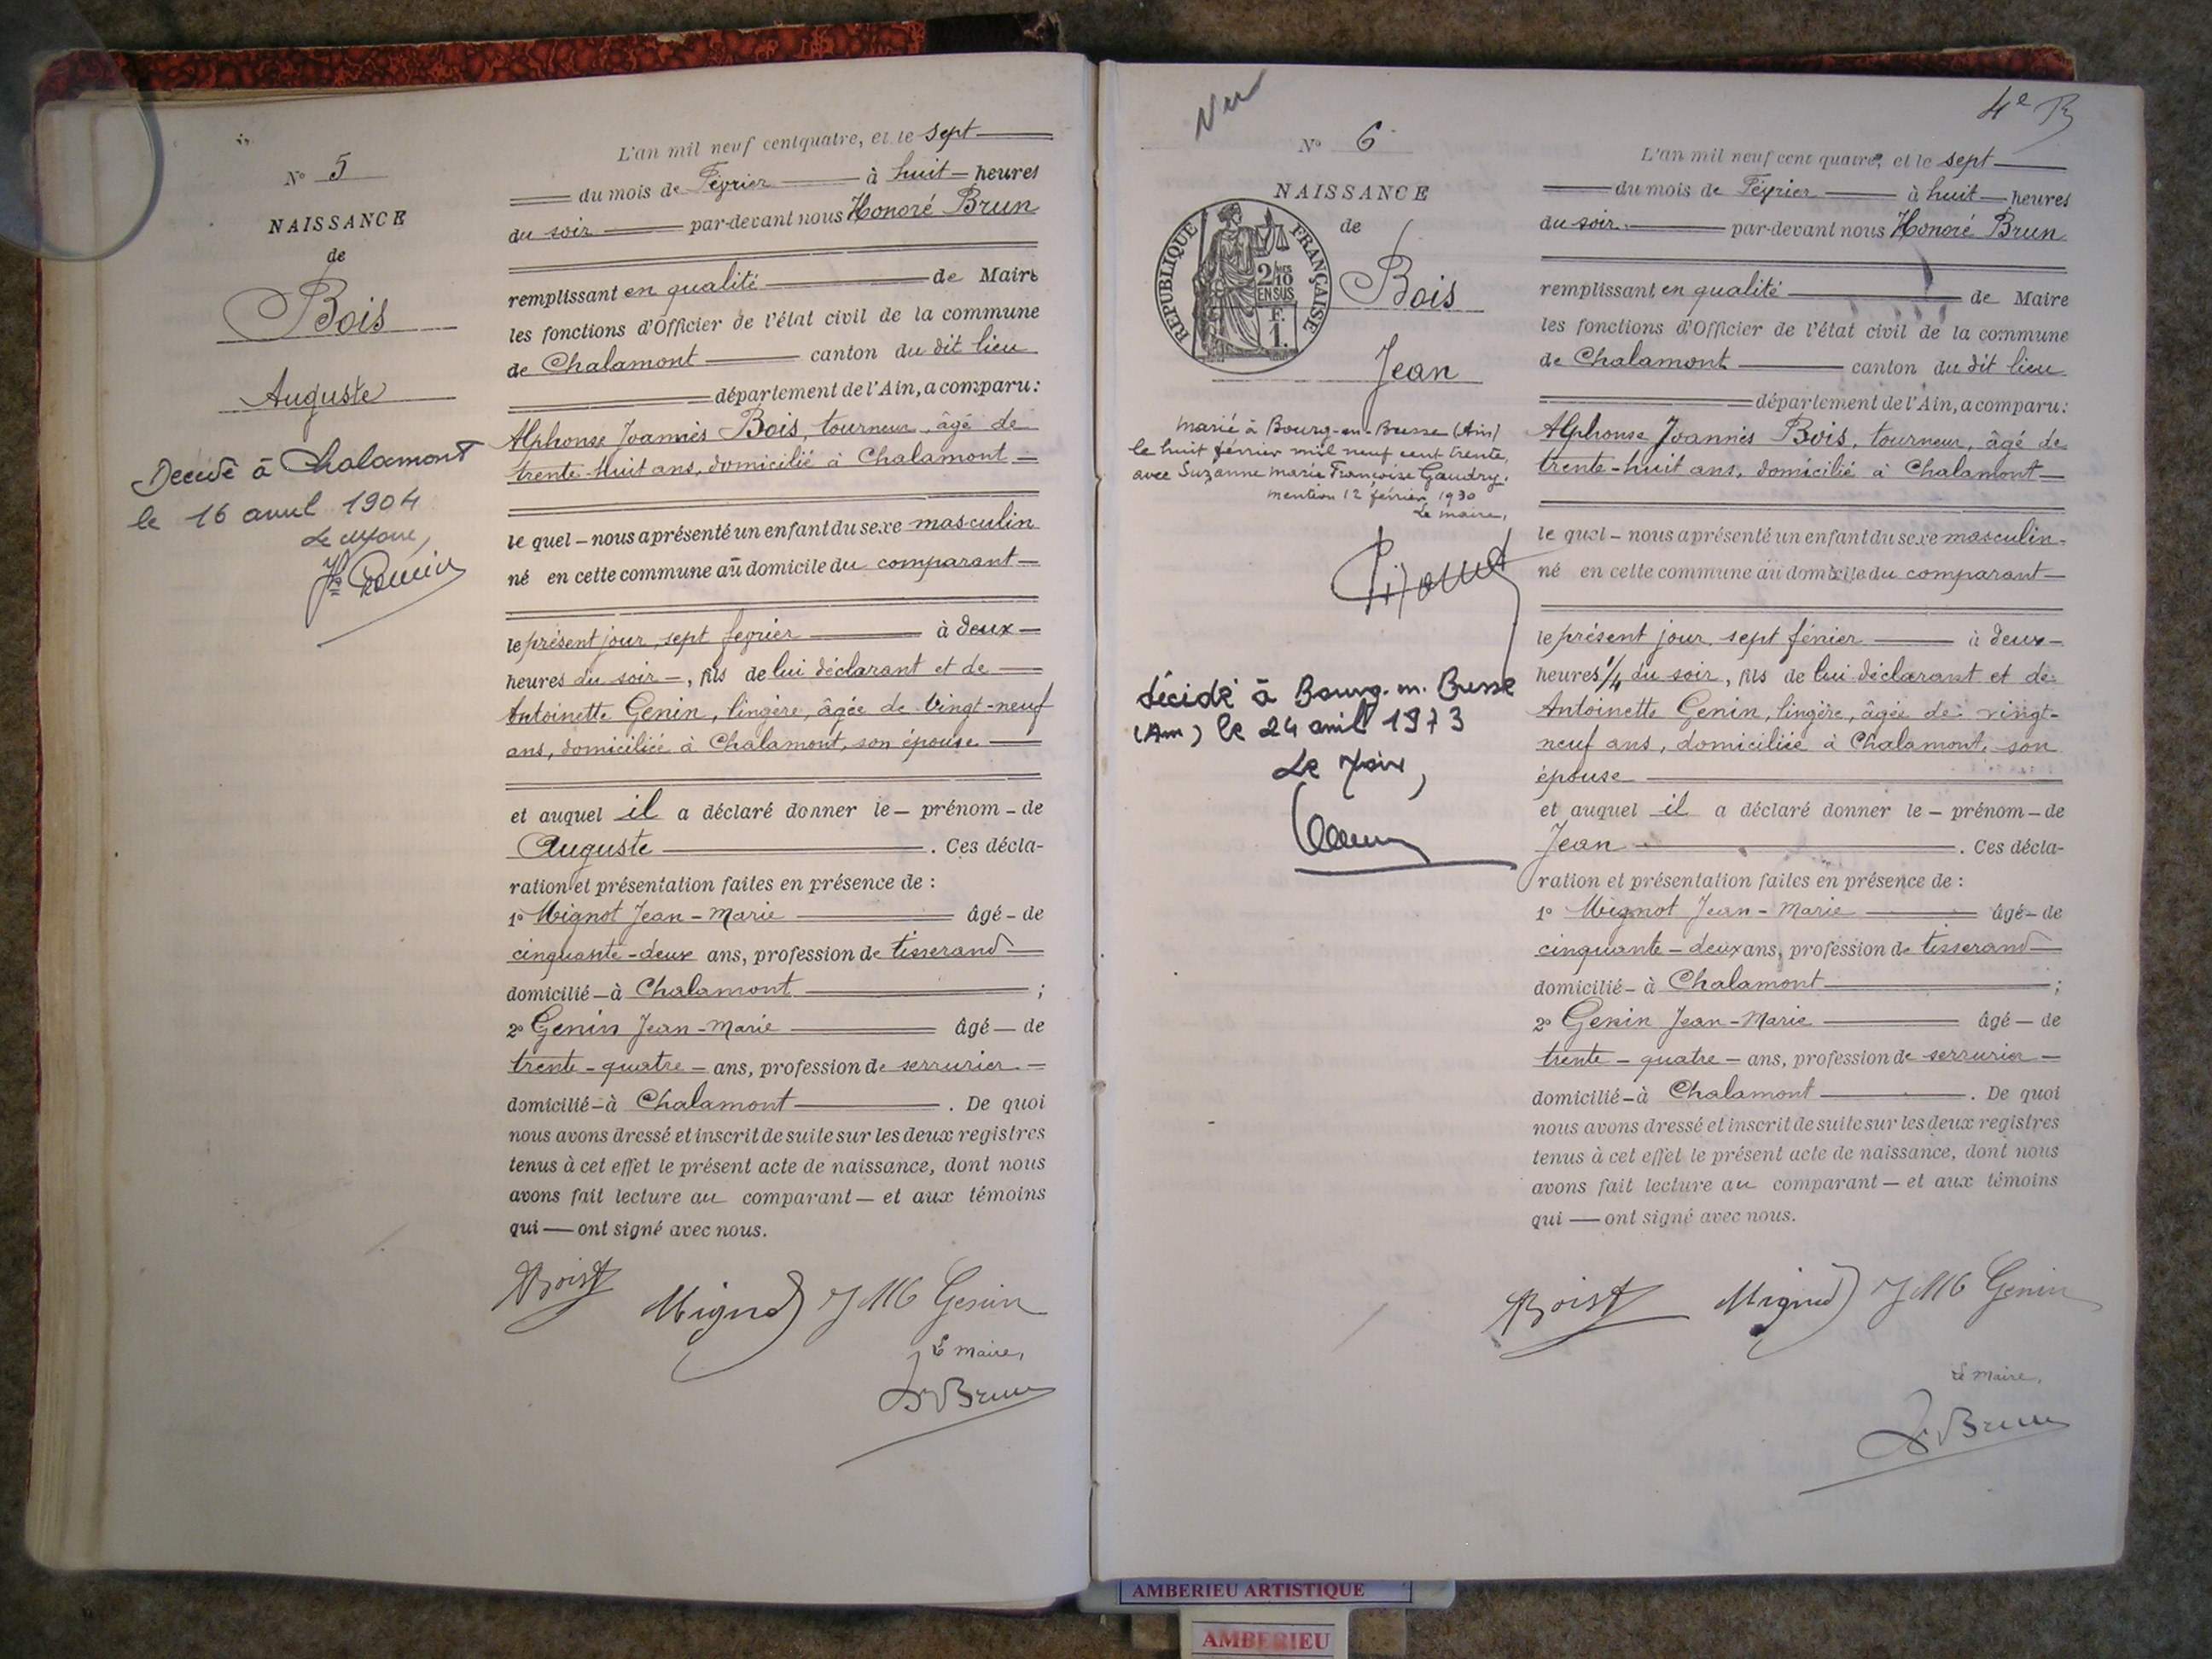 N° 5
NAISSANCE
de
Bois
Auguste
Décédé à Chalamont
le 16 avril 1904
Le Maire,
L'an mil neuf cent quatre, et le sept
du mois de Février à huit heures
du soir par-devant nous Honoré Brun
remplissant en qualité de Maire
les fonctions d'Officier de l'état civil de la commune
de Chalamont canton du dit lieu
département de l'Ain, a comparu:
Alphonse Joannès Bois, tourneur, âgé de
trente-huit ans, domicilié à Chalamont
le quel – nous a présenté un enfant du sexe masculin
né en cette commune au domicile du comparant
le présent jour, sept février à deux
heures du soir, fils de lui déclarant et de
Antoinette Genin, lingère, âgée de vingt-neuf
ans, domiciliée à Chalamont, son épouse
et auquel il a déclaré donner le – prénom – de
Auguste. Ces décla-
ration et présentation faites en présence de :
1° Mignot Jean-Marie âgé – de
cinquante-deux ans, profession de tisserand
domicilié – à Chalamont ;
2° Genin Jean-Marie âgé — de
trente-quatre – ans, profession de serrurier
domicilié – à Chalamont. De quoi
nous avons dressé et inscrit de suite sur les deux registres
tenus à cet effet le présent acte de naissance, dont nous
avons fait lecture au comparant — et aux témoins
qui — ont signé avec nous.
Bois Mignot JM Genin
Le maire,
Brun
Vu
4e
N° 6
NAISSANCE
de
REPUBLIQUE FRANÇAISE
2/10
EN SUS
F.
1.
Bois
Jean
Marié à Bourg-en-Bresse (Ain)
le huit février mil neuf cent trente,
avec Suzanne Marie Françoise Gaudry.
Mention 12 février 1930
Le maire,
décédé à Bourg-en-Bresse
(Ain) le 24 avril 1973
Le Maire,
L'an mil neuf cent quatre, et le sept
du mois de Février à huit heures
du soir. par-devant nous Honoré Brun
remplissant en qualité de Maire
les fonctions d'Officier de l'état civil de la commune
de Chalamont canton du dit lieu
département de l'Ain, a comparu:
Alphonse Joannès Bois, tourneur, âgé de
trente-huit ans, domicilié à Chalamont
le quel – nous a présenté un enfant du sexe masculin
né en cette commune au domicile du comparant
le présent jour, sept février à deux
heures 1/4 du soir, fils de lui déclarant et de
Antoinette Genin, lingère, âgée de vingt-
neuf ans, domiciliée à Chalamont, son
épouse
et auquel il a déclaré donner le – prénom – de
Jean. Ces décla-
ration et présentation faites en présence de :
1° Mignot Jean-Marie âgé – de
cinquante-deux ans, profession de tisserand
domicilié – à Chalamont ;
2° Genin Jean-Marie âgé — de
trente-quatre – ans, profession de serrurier
domicilié – à Chalamont. De quoi
nous avons dressé et inscrit de suite sur les deux registres
tenus à cet effet le présent acte de naissance, dont nous
avons fait lecture au comparant — et aux témoins
qui — ont signé avec nous.
Bois Mignot JM Genin
Le maire,
Brun
AMBERIEU ARTISTIQUE
AMBERIEU